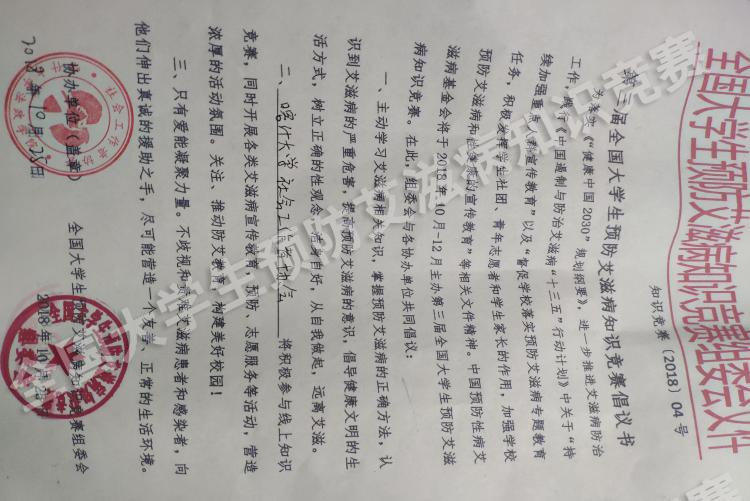 全国大学生预防艾滋病知识竞赛组委会文件
知识竞赛〔2018〕04号
第三届全国大学生预防艾滋病知识竞赛倡议书
为落实《“健康中国2030”规划纲要》,进一步推进艾滋病防治
工作,践行《中国遏制与防治艾滋病“十三五”行动计划》中关于“持
续加强重点人群宣传教育”以及“督促学校落实预防艾滋病专题教育
任务,积极发挥学生社团、青年志愿者和学生家长的作用,加强学校
预防艾滋病和性健康的宣传教育”等相关文件精神。中国预防性病艾
滋病基金会将于2018年10月-12月主办第三届全国大学生预防艾滋
病知识竞赛。在此,组委会与各协办单位共同倡议:
一、主动学习艾滋病相关知识,掌握预防艾滋病的正确方法,认
识到艾滋病的严重危害,提高预防艾滋病的意识,倡导健康文明的生
活方式,树立正确的性观念,洁身自好,从自我做起,远离艾滋。
二、喀什大学社会工作协会将积极参与线上知识
竞赛,同时开展各类艾滋病宣传教育、预防、志愿服务等活动,营造
浓厚的活动氛围。关注、推动防艾教育,构建美好校园!
三、只有爱能凝聚力量。不歧视和疏远艾滋病患者和感染者,向
他们伸出真诚的援助之手,尽可能营造一个友善、正常的生活环境。
协办单位(盖章) 全国大学生预防艾滋病知识竞赛组委会
2018年10月25日 2018年10月
社会工作协会
全国大学生预防艾滋病知识竞赛